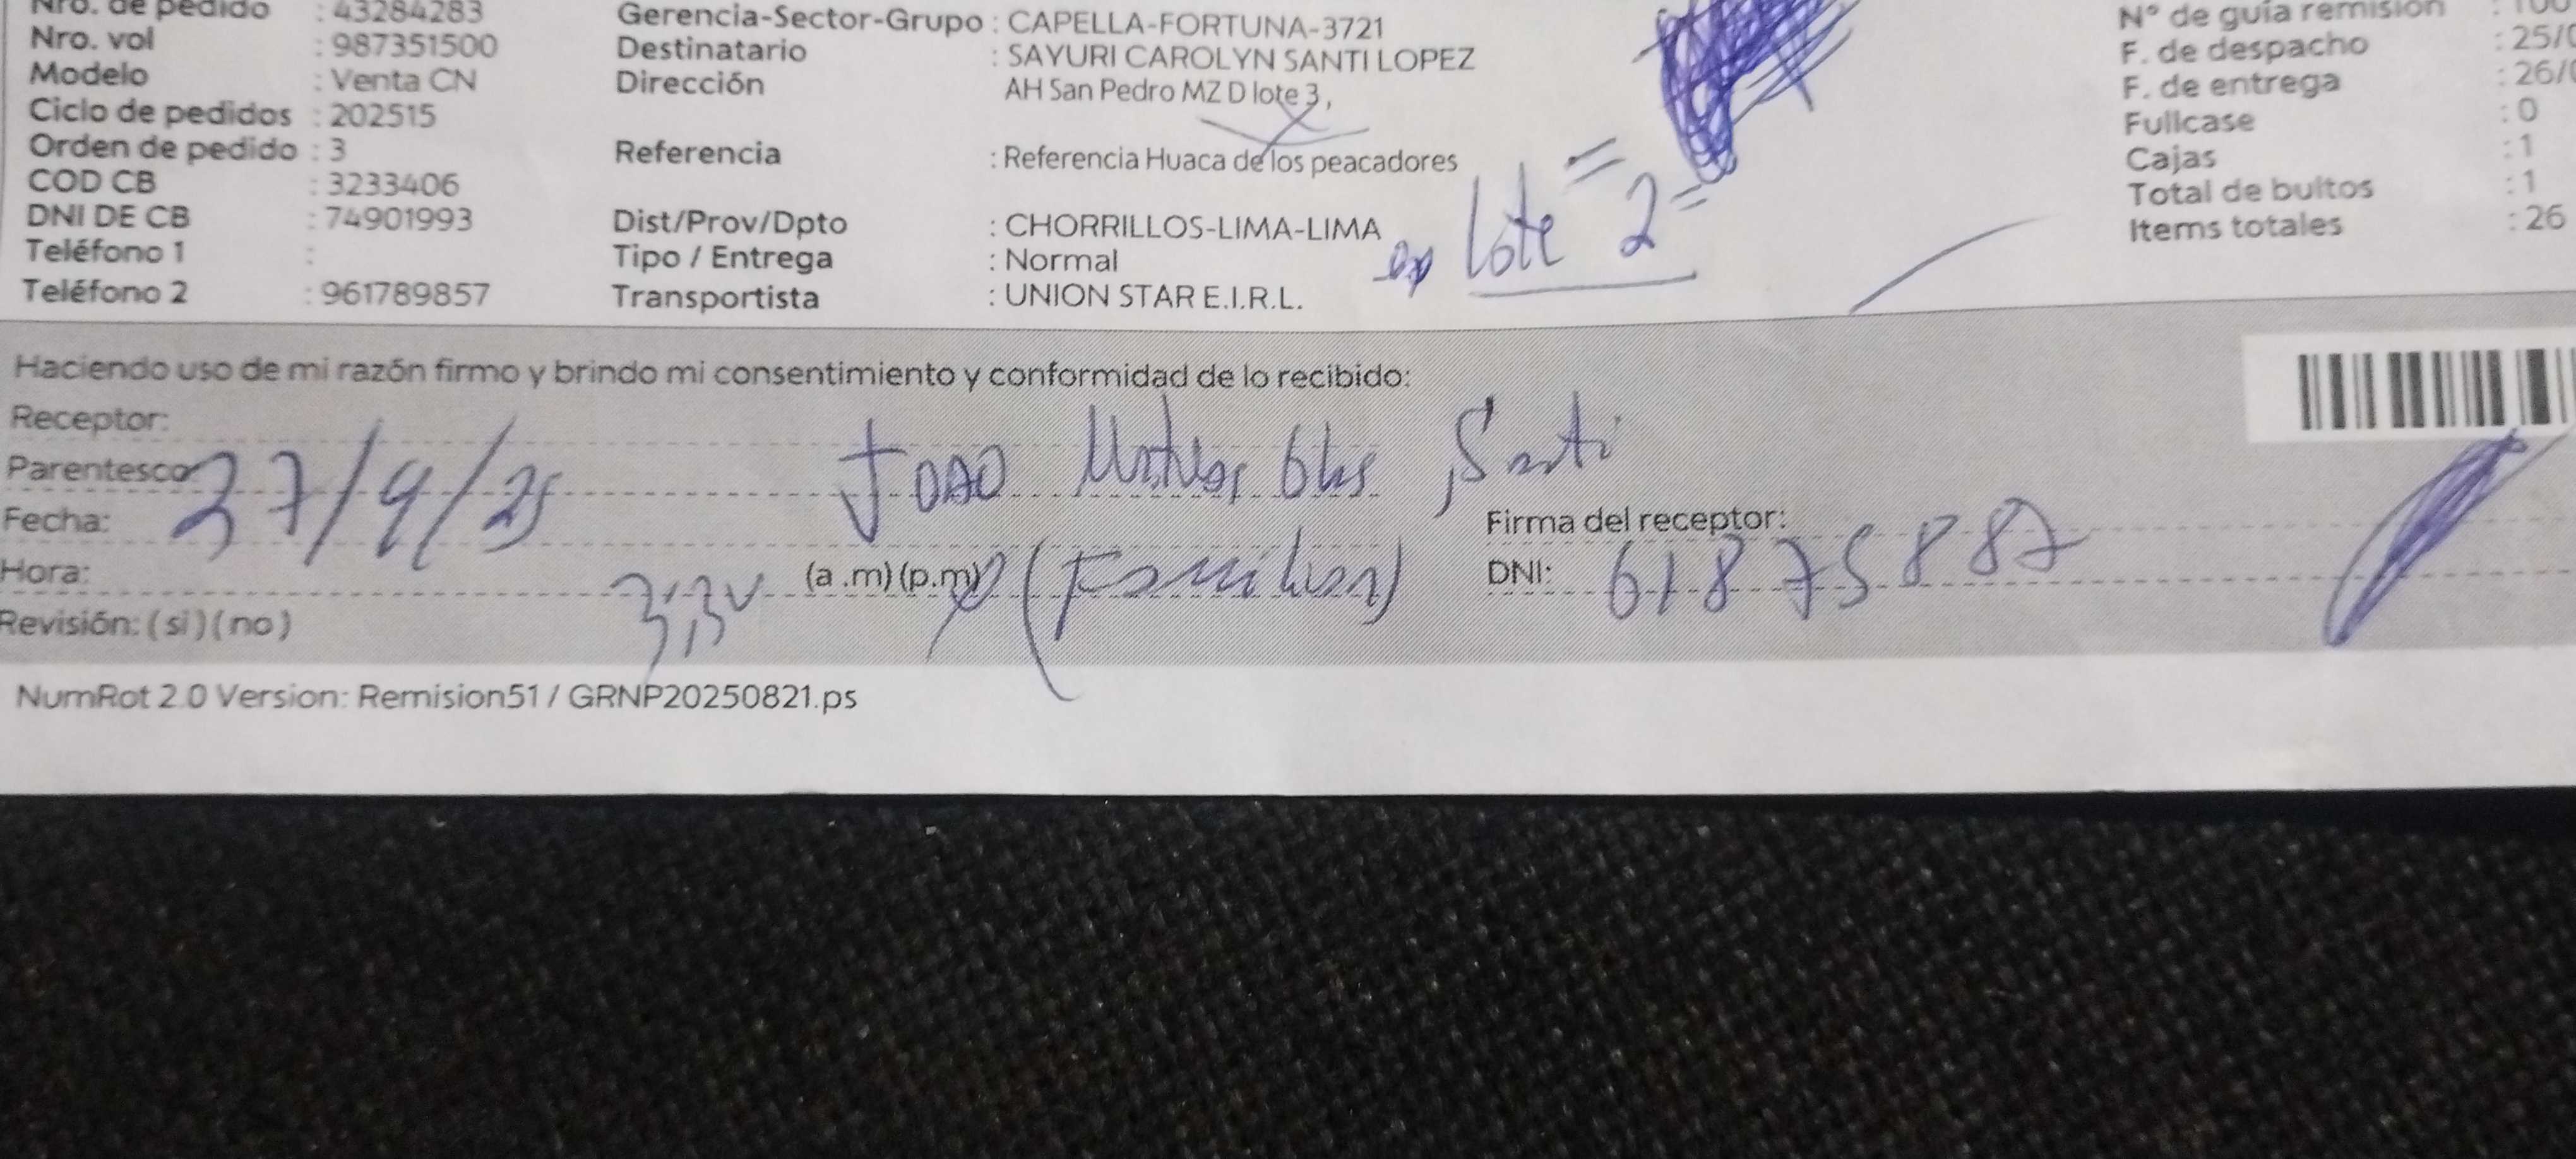 Nro. de pedido : 43284283
Nro. vol : 987351500
Modelo : Venta CN
Ciclo de pedidos : 202515
Orden de pedido : 3
COD CB : 3233406
DNI DE CB : 74901993
Teléfono 1 :
Teléfono 2 : 961789857
Gerencia-Sector-Grupo : CAPELLA-FORTUNA-3721
Destinatario : SAYURI CAROLYN SANTI LOPEZ
Dirección AH San Pedro MZ D lote 3,
Referencia : Referencia Huaca de los peacadores
Dist/Prov/Dpto : CHORRILLOS-LIMA-LIMA
Tipo / Entrega : Normal
Transportista : UNION STAR E.I.R.L.
lote 2
N° de guía remisión : 100
F. de despacho : 25/0
F. de entrega : 26/0
Fullcase : 0
Cajas : 1
Total de bultos : 1
Items totales : 26
Haciendo uso de mi razón firmo y brindo mi consentimiento y conformidad de lo recibido:
Receptor: Joao Santi
Parentesco
Fecha: 27/9/25
Firma del receptor:
Hora: 3:30 (a .m) (p.m) (Familiar) DNI: 61875887
Revisión: ( si ) ( no )
NumRot 2.0 Version: Remision51 / GRNP20250821.ps